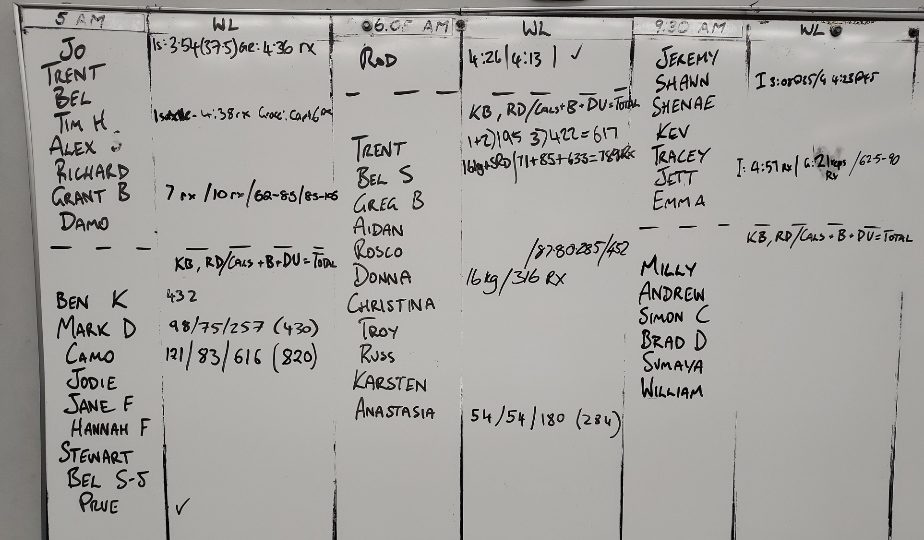 5 AM
WL
JO
1s: 3:54(37.5) GR: 4:36 rx
TRENT
BEL
TIM H.
4:38rx
ALEX
RICHARD
GRANT B
7 rx / 10 rx / 62-85 / 85-105
DAMO
KB, RD/CALS + B + DU = TOTAL
BEN K
432
MARK D
98/75/257 (430)
CAMO
121/83/616 (820)
JODIE
JANE F
HANNAH F
STEWART
BEL S-J
PRUE
✓
6.05 AM
WL
ROD
4:26 / 4:13 / ✓
KB, RD/CALS + B + DU = TOTAL
1+2) 195 3) 422 = 617
TRENT
16kg+SRD / 71+85+633=789 Rx
BEL S
GREG B
AIDAN
ROSCO
/87-80-285/452
DONNA
16kg / 316 RX
CHRISTINA
TROY
RUSS
KARSTEN
ANASTASIA
54/54/180 (284)
9.30 AM
WL
JEREMY
SHAWN
SHENAE
KEV
TRACEY
I: 4:57 Rx / G: 21 reps Rx / 62.5-90
JETT
EMMA
KB, RD/CALS + B + DU = TOTAL
MILLY
ANDREW
SIMON C
BRAD D
SUMAYA
WILLIAM